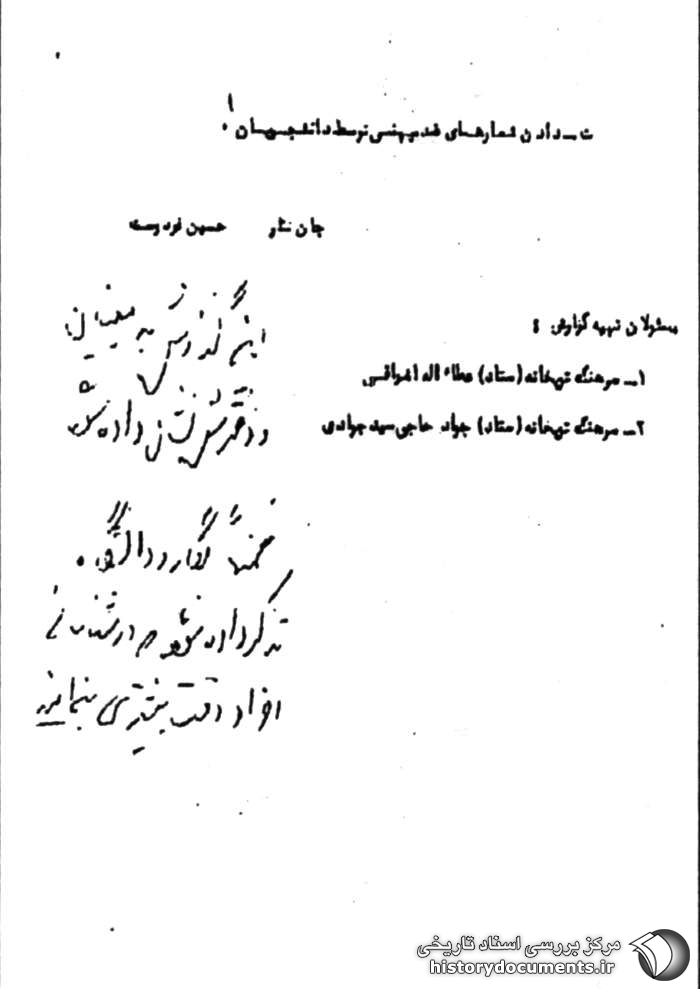 ت ـ دادن شعارهای ضد میهنی توسط دانشجویان !
جان نثار حسین فردوست
مسئولان تهیه گزارش :
۱ـ سرهنگ توپخانه (ستاد) عطاء اله اشراقی
۲ـ سرهنگ توپخانه (ستاد) جواد حاجی سید جوادی
این گزارش به
و دفتر نشان داده شد
ضمناً گارد دانشگاه
تذکر داده شود در شناسائی
افراد دقت بیشتری بنمایند
مرکز بررسی اسناد تاریخی
historydocuments.ir